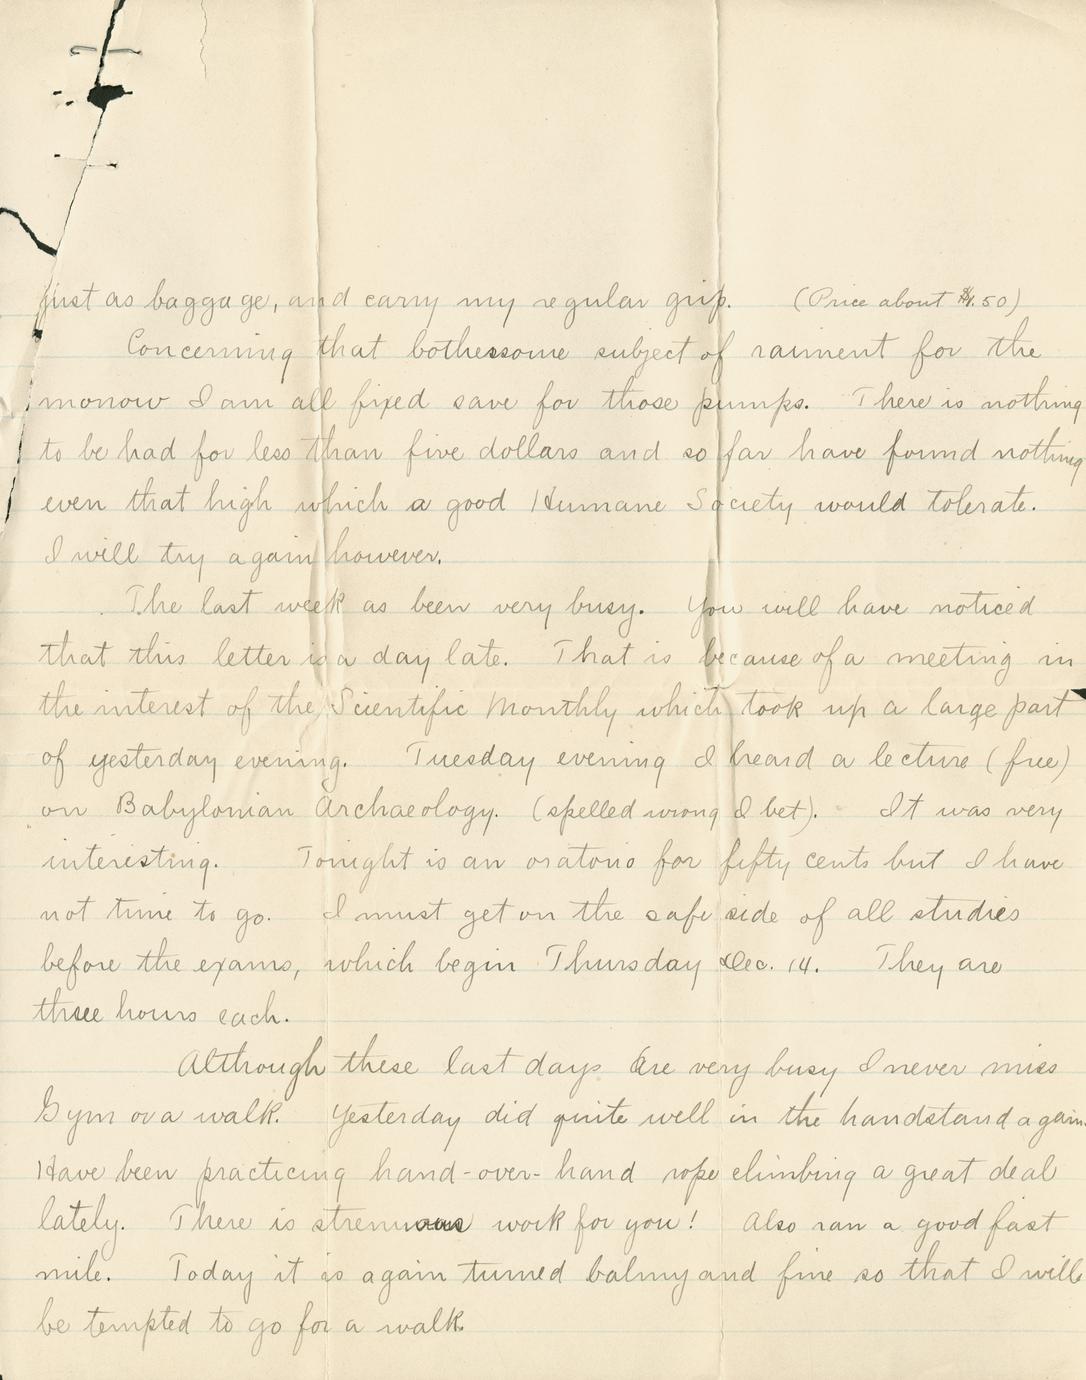 just as baggage, and carry my regular grip. (Price about $1.50)
Concerning that bothersome subject of raiment for the
monow I am all fixed save for those pumps. There is nothing
to be had for less than five dollars and so far have found nothing
even that high which a good Humane Society would tolerate.
I will try again however.
The last week as been very busy. You will have noticed
that this letter is a day late. That is because of a meeting in
the interest of the Scientific Monthly which took up a large part
of yesterday evening. Tuesday evening I heard a lecture (free)
on Babylonian Archaeology. (spelled wrong I bet). It was very
interesting. Tonight is an oratorio for fifty cents but I have
not time to go. I must get on the safe side of all studies
before the exams, which begin Thursday Dec. 14. They are
three hours each.
Although these last days are very busy I never miss
Gym or a walk. Yesterday did quite well in the handstand again.
Have been practicing hand-over-hand rope climbing a great deal
lately. There is strenuous work for you! Also ran a good fast
mile. Today it is again turned balmy and fine so that I will
be tempted to go for a walk.